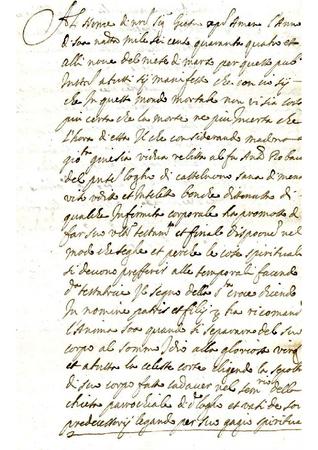 Al Nome di nro Sig.r Giesu xpo Amen l'Anno
di sua natta mile sei cento quaranta quatro et
alli nove del mese di marzo per questo pub.
Instr.o a tutti sij manifesto che con cio sij
che In questo mondo mortale non vi sia cosa
più certa che la morte ne più Incerta che
l'hora di essa Il che considerando madona
relitta al fu And.
del pnte logho di sana di mente
vista udito et Inteletto benche di
qualche Infermita corporale ha promosto di
far suo ult.o testam.to et final dispone nel
modo che segue et perche le cose spirituale
si devono prefferir alle temporali facendo
d.a testatrice Il segno della S.ta croce dicendo
In nomine patris et filij ha ricomand
l'Anima sua quando si separara del suo
corpo al sommo Idio alla gloriosa verg
et a tutta la celeste corte eligendo la sepolt
di suo corpo fatto cadaver nel della
chiesa parochiale di d.o logho et de soi
predecessorij legando per suo spiritua